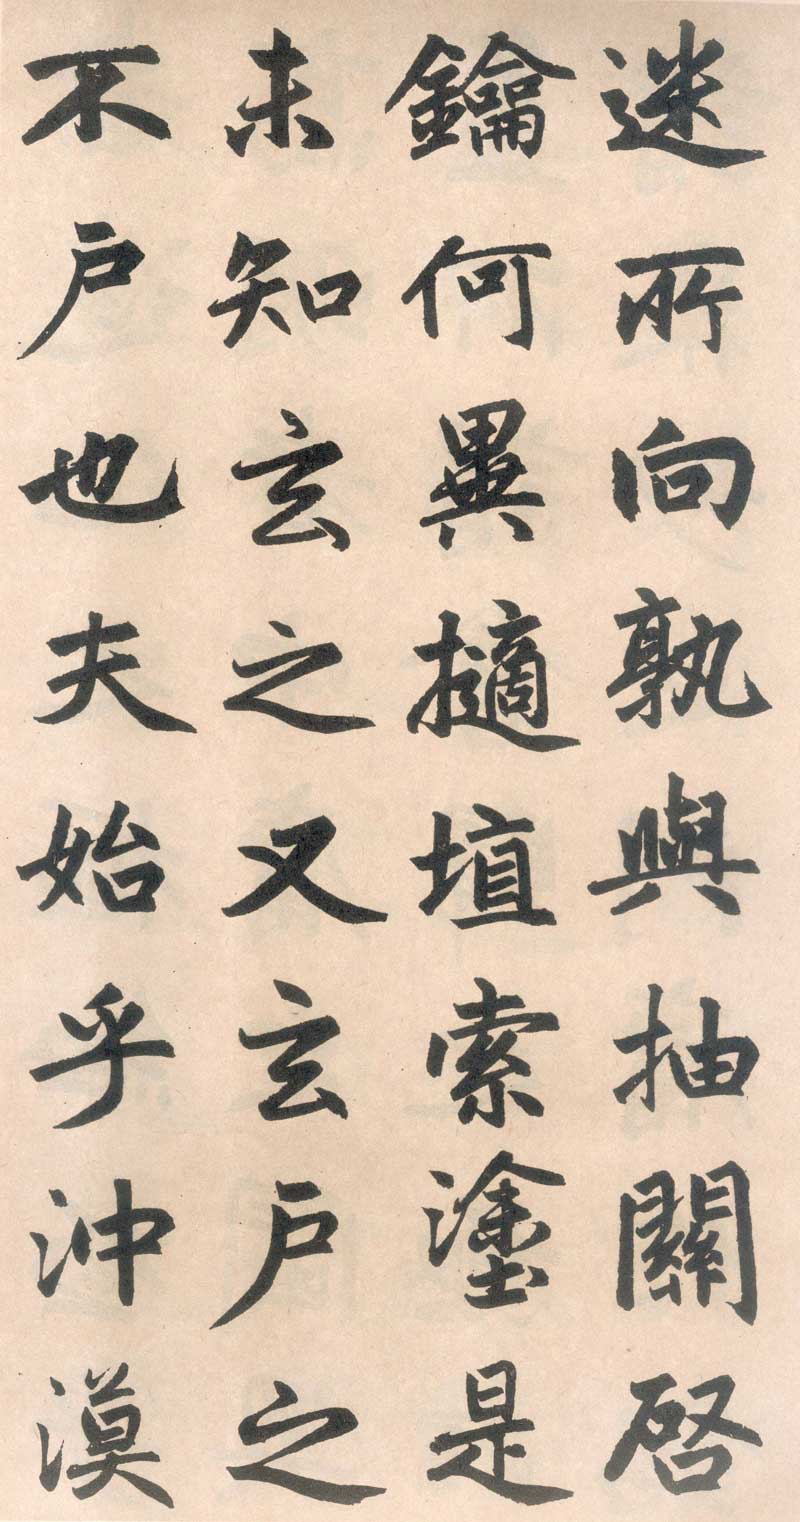 迷所向孰與抽關啓
鑰何異擿埴索塗是
未知玄之又玄戶之
不戶也夫始乎沖漠